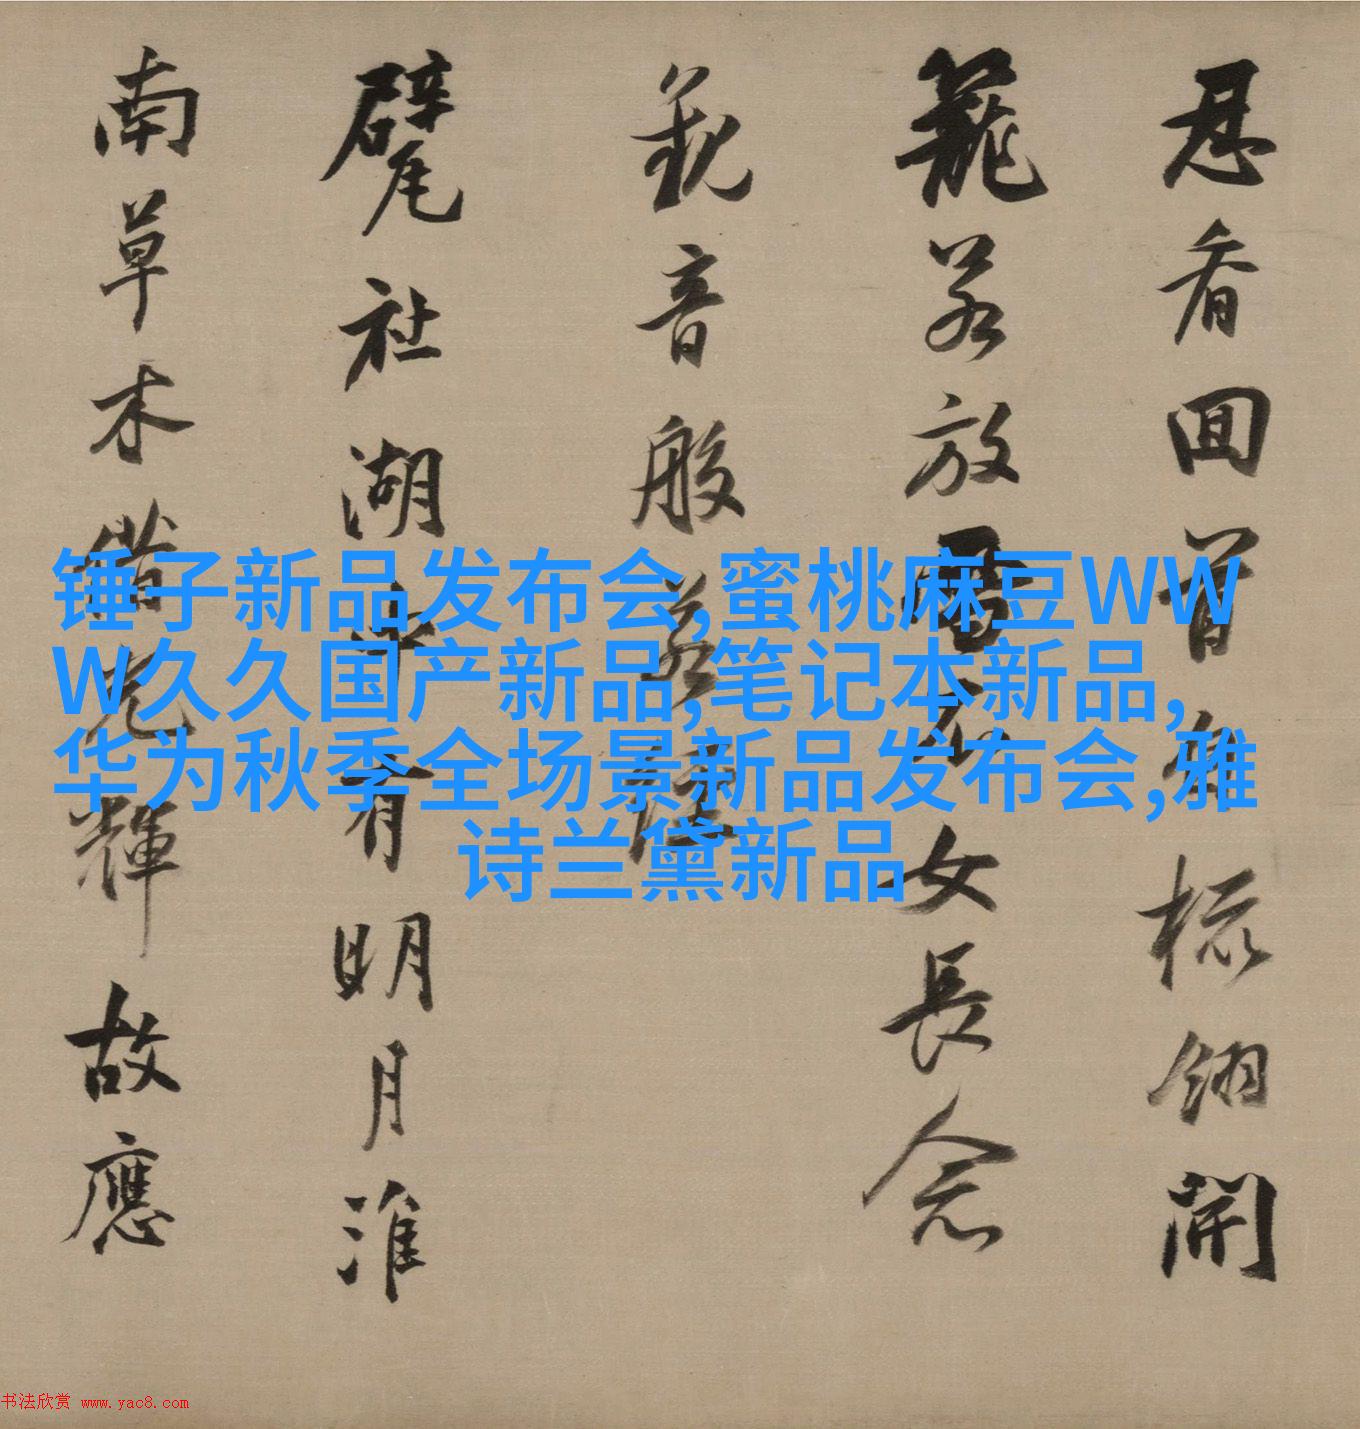 忍看回首自梳翎開
籠若放雪衣女長念
觀音般若經
甓社湖中有明月淮
南草木借光輝故應
锤子新品发布会,蜜桃麻豆WW
W久久国产新品,笔记本新品,
华为秋季全场景新品发布会,雅
诗兰黛新品
书法欣赏 www.yac8.com